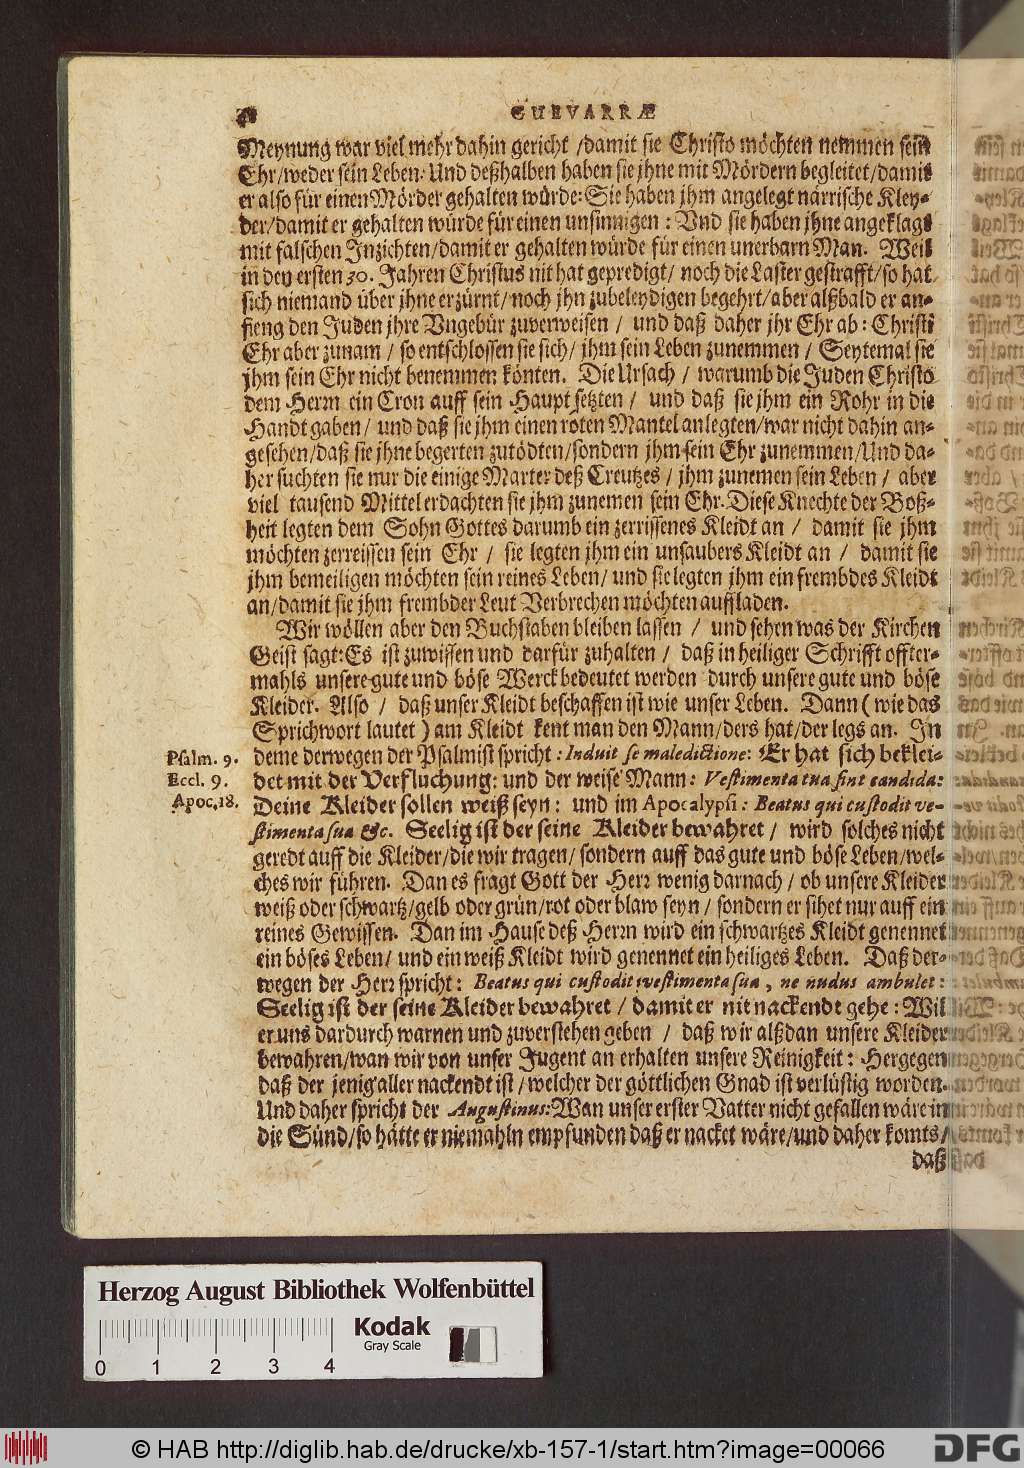 GUEVARRÆ
Meynung war viel mehr dahin gericht /damit sie Christo möchten nemmen sein
Ehr/weder sein Leben: Und deßhalben haben sie jhne mit Mördern begleitet/damit
er also für einen Mörder gehalten würde: Sie haben jhm angelegt närrische Kley-
der/damit er gehalten würde für einen unsinnigen: Und sie haben jhne angeklagt
mit falschen Inzichten/damit er gehalten würde für einen unerbarn Man. Weil
in den ersten 30. Jahren Christus nit hat gepredigt/ noch die Laster gestrafft/so hat
sich niemand über jhne erzürnt/noch jhn zubeleydigen begehrt/aber alßbald er an-
fieng den Juden jhre Ungebür zuverweisen / und daß daher jhr Ehr ab: Christi
Ehr aber zunam / so entschlossen sie sich/ jhm sein Leben zunemmen / Seytemal sie
jhm sein Ehr nicht benemmen könten. Die Ursach / warumb die Juden Christo
dem Herrn ein Cron auff sein Haupt setzten / und daß sie jhm ein Rohr in die
Handt gaben / und daß sie jhm einen roten Mantel anlegten/war nicht dahin an-
gesehen/daß sie jhne begerten zutödten/sondern jhm sein Ehr zunemmen/Und da-
her suchten sie nur die einige Marter deß Creutzes / jhm zunemen sein Leben / aber
viel tausend Mittel erdachten sie jhm zunemen sein Ehr. Diese Knechte der Boß-
heit legten dem Sohn Gottes darumb ein zerrissenes Kleidt an / damit sie jhm
möchten zerreissen sein Ehr / sie legten jhm ein unsaubers Kleidt an / damit sie
jhm bemeiligen möchten sein reines Leben/ und sie legten jhm ein frembdes Kleidt
an/damit sie jhm frembder Leut Verbrechen möchten auffladen.
Wir wöllen aber den Buchstaben bleiben lassen / und sehen was der Kirchen
Geist sagt: Es ist zuwissen und darfür zuhalten / daß in heiliger Schrifft offter-
mahls unsere gute und böse Werck bedeutet werden durch unsere gute und böse
Kleider. Also / daß unser Kleidt beschaffen ist wie unser Leben. Dann ( wie das
Sprichwort lautet ) am Kleidt kent man den Mann/ders hat/der legs an. In
Psalm. 9. deme derwegen der Psalmist spricht: Induit se maledictione: Er hat sich beklei-
Eccl. 9. det mit der Verfluchung: und der weise Mann: Vestimenta tua sint candida:
Apoc. 18. Deine Kleider sollen weiß seyn: und im Apocalypsi: Beatus qui custodit ve-
stimenta sua &c. Seelig ist der seine Kleider bewahret / wird solches nicht
geredt auff die Kleider/die wir tragen/ sondern auff das gute und böse Leben/wel-
ches wir führen. Dan es fragt Gott der Herr wenig darnach / ob unsere Kleider
weiß oder schwartz/gelb oder grün/rot oder blaw seyn / sondern er sihet nur auff ein
reines Gewissen. Dan im Hause deß Herrn wird ein schwartzes Kleidt genennet
ein böses Leben/ und ein weiß Kleidt wird genennet ein heiliges Leben. Daß der-
wegen der Herr spricht: Beatus qui custodit vestimenta sua, ne nudus ambulet:
Seelig ist der seine Kleider bewahret / damit er nit nackendt gehe: Wil
er uns dardurch warnen und zuverstehen geben / daß wir alßdan unsere Kleider
bewahren/wan wir von unser Jugent an erhalten unsere Reinigkeit: Hergegen
daß der jenig aller nackendt ist / welcher der göttlichen Gnad ist verlüstig worden.
Und daher spricht der Augustinus: Wan unser erster Vatter nicht gefallen wäre in
die Sünd/so hätte er niemahln empfunden daß er nacket wäre/und daher komts/
daß
Herzog August Bibliothek Wolfenbüttel
Kodak
Gray Scale
0 1 2 3 4
© HAB http://diglib.hab.de/drucke/xb-157-1/start.htm?image=00066
DFG